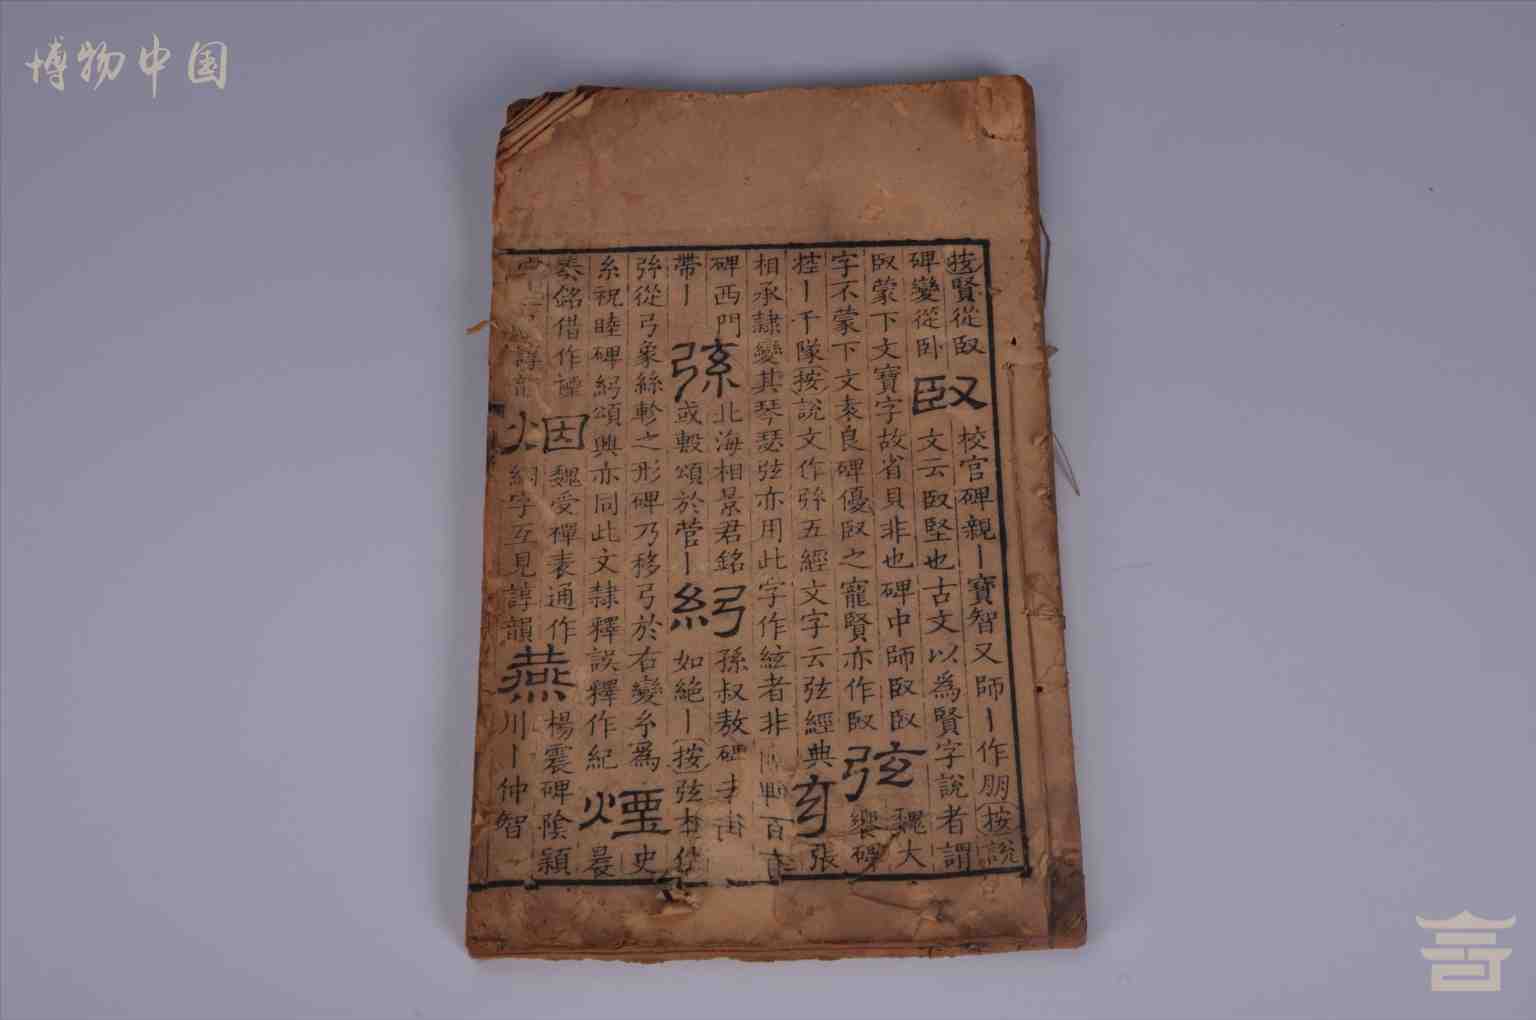 博物中国
按賢從臤
碑變從臥
臤
校官碑親丨寶智又師丨作朋按說
文云臤堅也古文以為賢字說者謂
臤蒙下文寶字故省貝非也碑中師臤臤
字不蒙下文袁良碑優臤之寵賢亦作臤
弦
魏大
饗碑
控丨千隊按說文作弦五經文字云弦經典
相承隷變其琴瑟弦亦用此字作絃者非
張
碑西門
帶丨
北海相景君銘
或轂頌於菅丨
糿
孫叔敖碑
如絕丨按弦本作
弦從弓象絲軫之形碑乃移弓於右變糸為
糸祝睦碑糿頌興亦同此文隷釋誤釋作紀
煙
史
晨
奏銘借作禋
烟
魏受禪表通作
絪字互見諄韻
燕
楊震碑陰潁
川丨仲智